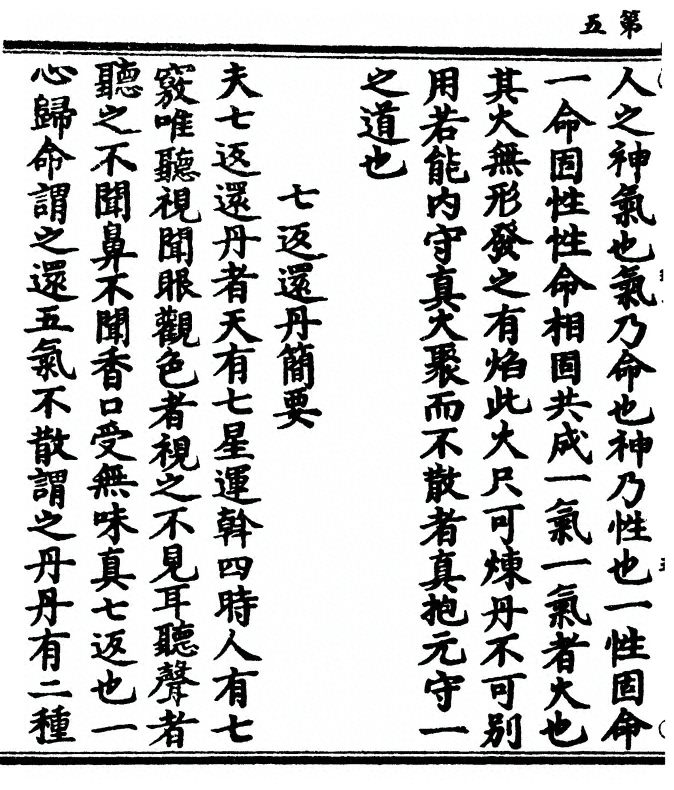 第五
人之神氣也氣乃命也神乃性也一性固命
一命固性性命相固共成一氣一氣者火也
其火無形發之有焰此火只可煉丹不可別
用若能內守真火聚而不散者真抱元守一
之道也
七返還丹簡要
夫七返還丹者天有七星運斡四時人有七
竅唯聽視聞眼觀色者視之不見耳聽聲者
聽之不聞鼻不聞香口受無味真七返也一
心歸命謂之還五氣不散謂之丹丹有二種